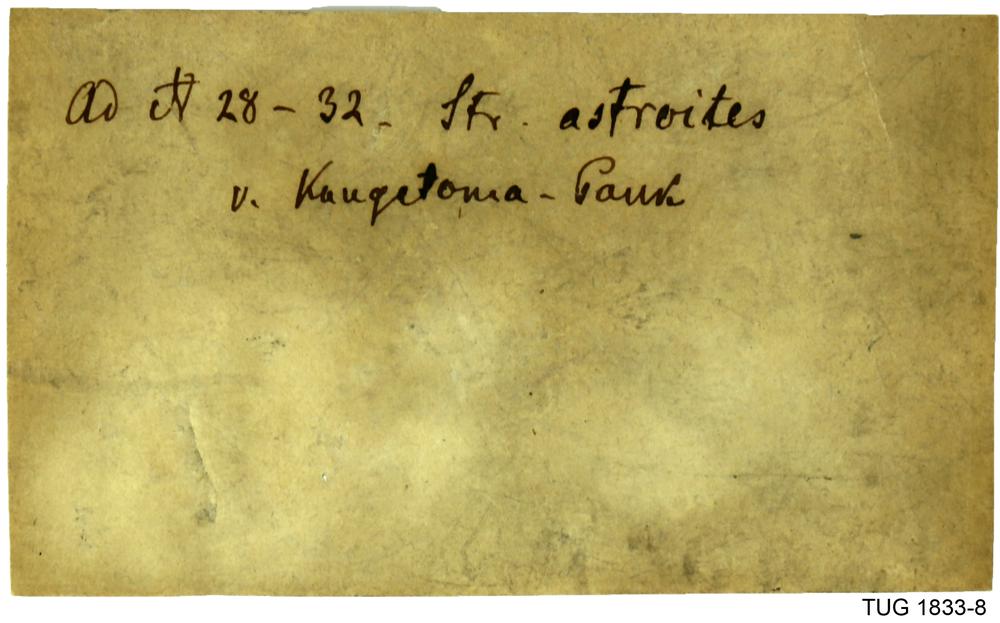 Ad № 28 - 32. Str. astroites
v. Kaugatoma - Pank
TUG 1833-8